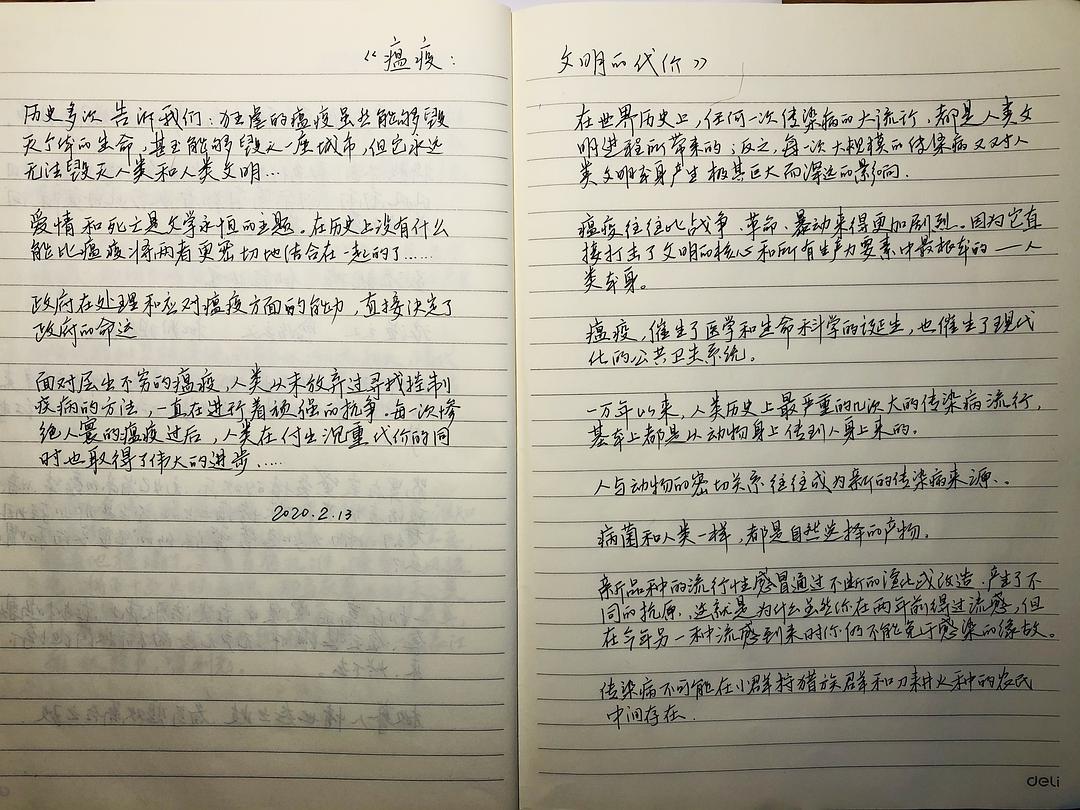 《瘟疫：
历史多次告诉我们：狂虐的瘟疫虽然能够毁
灭个体的生命，甚至能够毁灭一座城市，但它永远
无法毁灭人类和人类文明…
爱情和死亡是文学永恒的主题。在历史上没有什么
能比瘟疫将两者更密切地结合在一起的了……
政府在处理和应对瘟疫方面的能力，直接决定了
政府的命运
面对层出不穷的瘟疫，人类从未放弃过寻找控制
疾病的方法，一直在进行着顽强的抗争。每一次惨
绝人寰的瘟疫过后，人类在付出沉重代价的同
时也取得了伟大的进步……
2020.2.13
文明的代价》
在世界历史上，任何一次传染病的大流行，都是人类文
明进程所带来的；反之，每一次大规模的传染病又对人
类文明本身产生极其巨大而深远的影响.
瘟疫往往比战争、革命、暴动来得更加剧烈。因为它直
接打击了文明的核心和所有生产力要素中最根本的——人
类本身。
瘟疫，催生了医学和生命科学的诞生，也催生了现代
化的公共卫生系统。
一万年以来，人类历史上最严重的几次大的传染病流行，
基本上都是从动物身上传到人身上来的。
人与动物的密切关系往往成为新的传染病来源..
病菌和人类一样，都是自然选择的产物。
新品种的流行性感冒通过不断的演化或改造，产生了不
同的抗原. 这就是为什么虽然你在两年前得过流感，但
在今年另一种流感到来时你仍不能免于感染的缘故。
传染病不可能在小群狩猎族群和刀耕火种的农民
中间存在.
deli